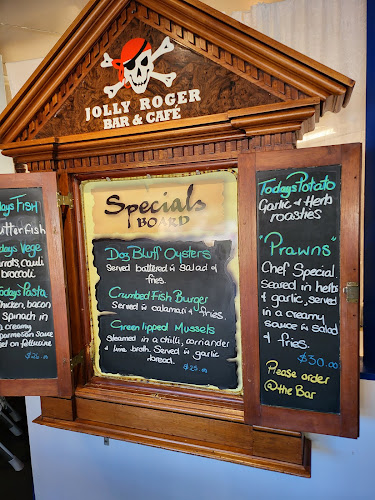 JOLLY ROGER
BAR & CAFÉ
days Fish
utterfish
days Vege
rrots, cauli
broccoli
odays Pasta
Chicken, bacon
spinach in
a creamy
parmesan sauce
set on fettucine
$26.00
Specials
BOARD
Dog Bluff Oysters
Served battered w salad &
fries.
Crumbed Fish Burger
Served w calamari & fries.
Green lipped Mussels
Steamed in a chilli, corriander
& lime broth. Served w garlic
bread.
$25.00
Todays Potato
Garlic & Herb
roasties
"Prawns"
Chef Special
Seared in herb
& garlic, served
in a creamy
sauce w salad
& fries.
$30.00
Please order
@ the Bar